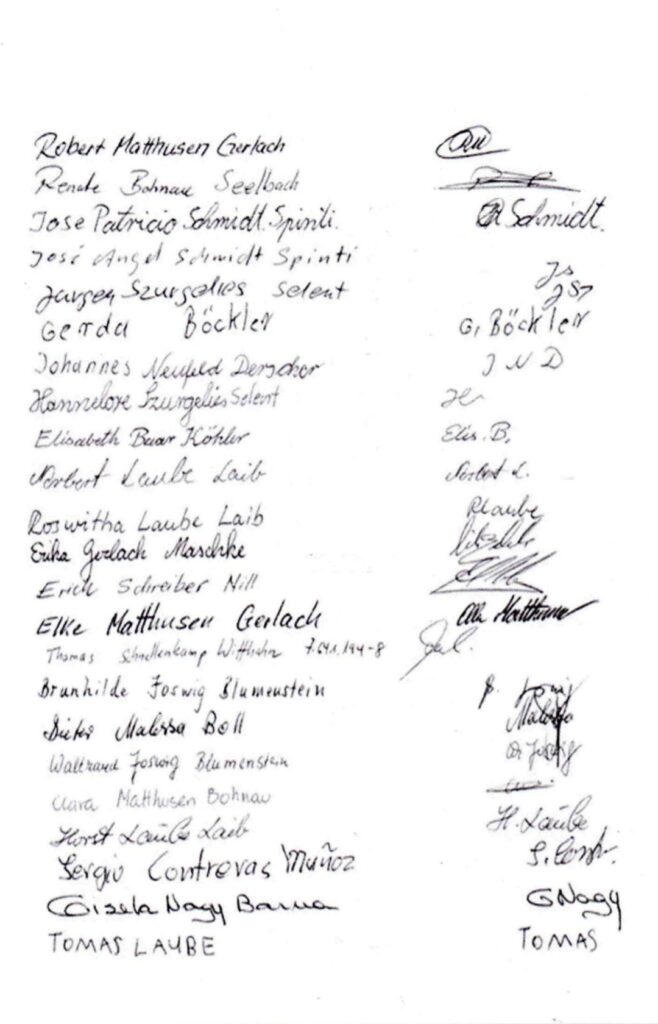 Robert Matthusen Gerlach
Renate Bohnau Seelbach
Jose Patricio Schmidt Spinti. Schmidt.
José Angel Schmidt Spinti JS
Jurgen Szurgelies Selent JSS
Gerda Böckler G. Böckler
Johannes Neufeld Derscher J N D
Hannelore Szurgelies Selent
Elisabeth Baar Köhler Elis. B.
Norbert Laube Laib Norbert L.
Roswitha Laube Laib RLaube
Erika Gerlach Maschke
Erich Schreiber Nill
Elke Matthusen Gerlach Matthusen
Thomas Schnellenkamp Witthahn 7.641.194-8
Brunhilde Joswig Blumenstein B. Joswig
Dieter Malessa Boll Malessa
Waltraud Joswig Blumenstein Joswig
Clara Matthusen Bohnau
Horst Laube Laib H. Laube
Sergio Contreras Muñoz S. Contr.
Gisela Nagy Barna GNagy
TOMAS LAUBE TOMAS